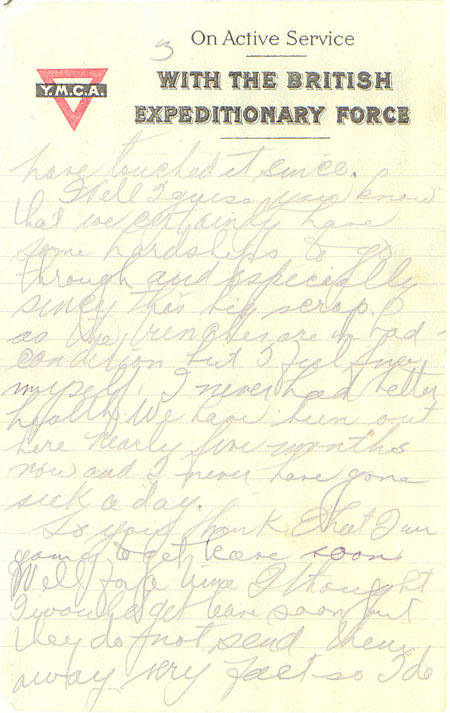 3
On Active Service
Y.M.C.A.
WITH THE BRITISH
EXPEDITIONARY FORCE
have touched it since.
Well I guess you know
that we certainly have
some hardships to go
through and especially
since this big scrap.
as the trenches are in bad
condition but I feel fine
myself. I never had better
health. We have been out
here nearly five months
now and I never have gone
sick a day.
So you think that I am
going to get leave soon
Well for a time I thought
I would get leave soon but
they do not send them
away very fast so I do